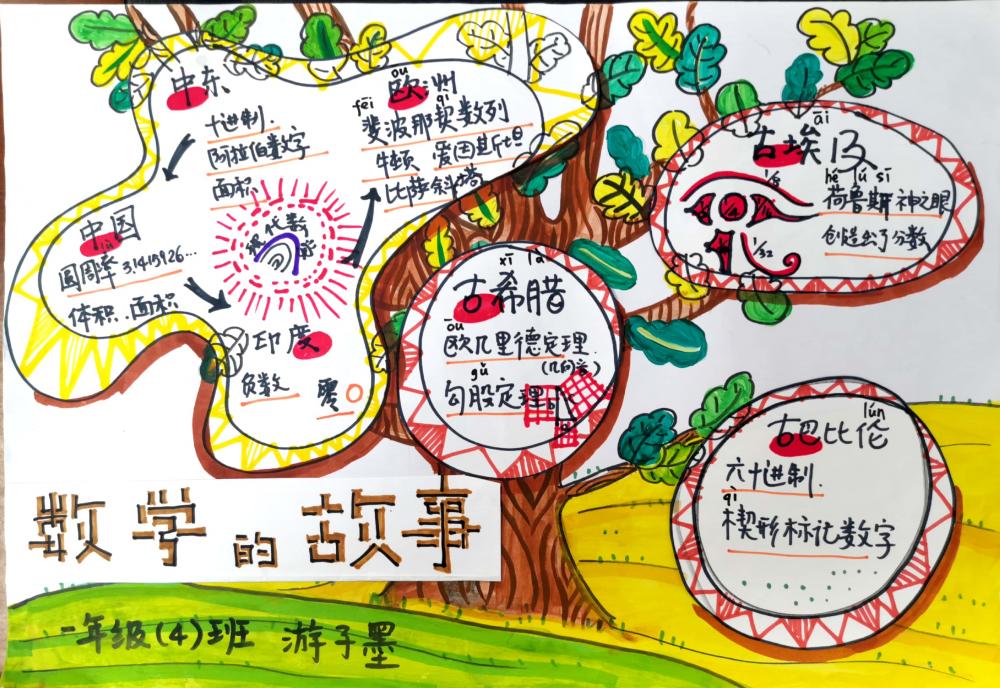 中东
十进制.
阿拉伯数字
面积
ōu
欧洲
fēi qì
斐波那契数列
牛顿 爱因斯坦
比萨斜塔
中国
lǜ
圆周率 3.1415926...
体积. 面积
印度
负数 零
xī là
古希腊
ōu
欧几里德定理.
(几何学)
gǔ
勾股定理
āi
古埃及
1/8
hé lǔ sī
荷鲁斯神之眼
创造出了分数
1/4
1/32
lún
古巴比伦
六十进制.
qì
楔形标记数字
数学的故事
一年级(4)班 游子墨